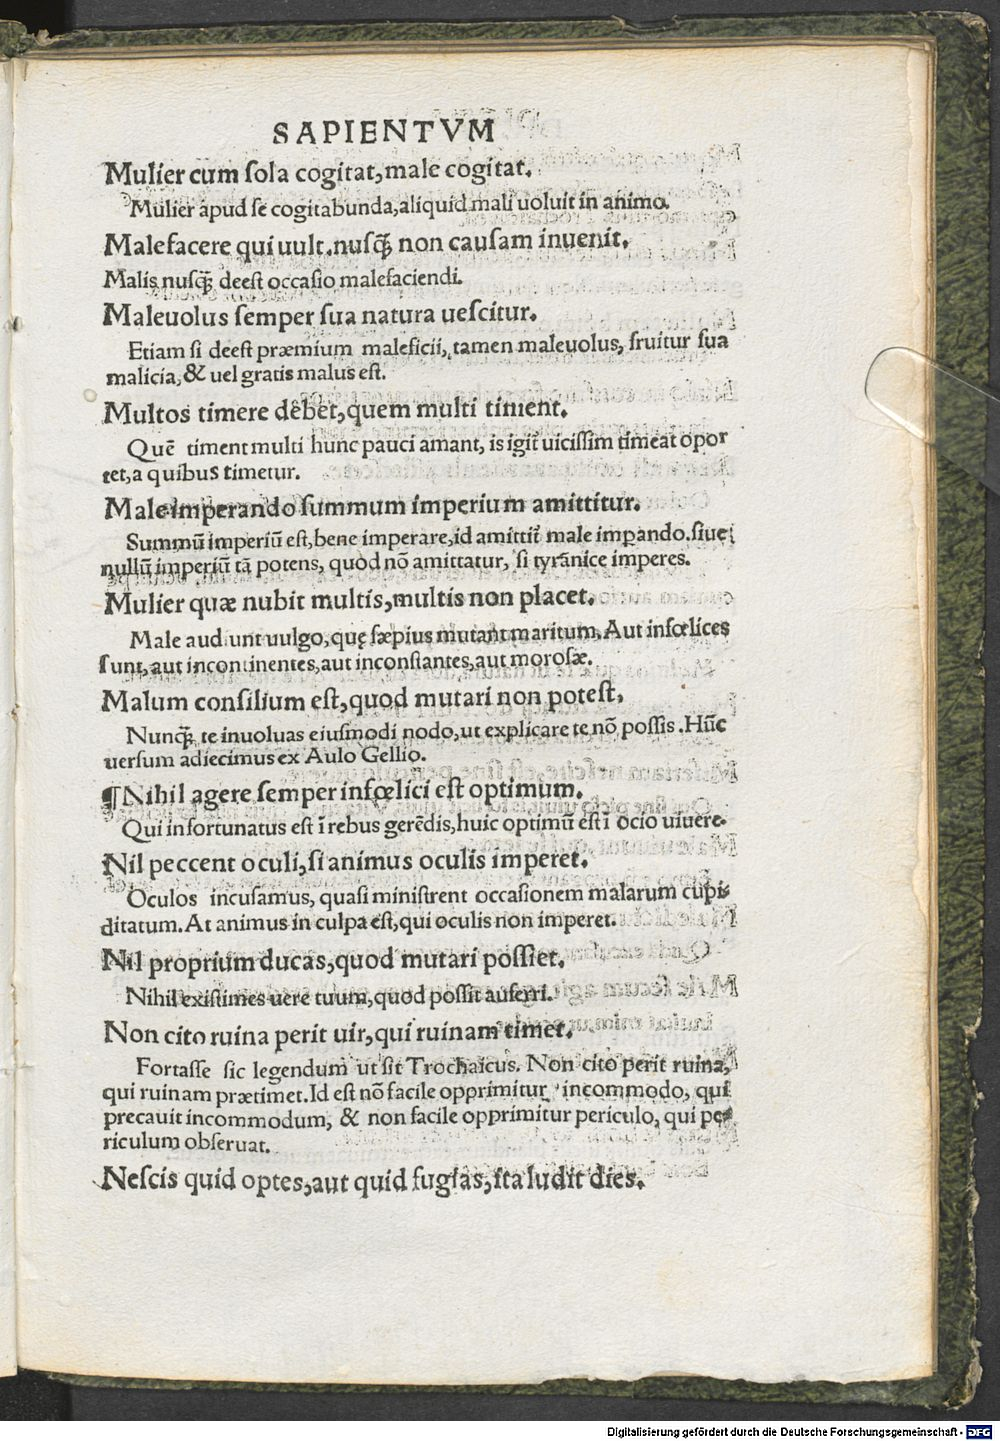 SAPIENTVM
Mulier cum ſola cogitat, male cogitat.
Mulier apud ſe cogitabunda, aliquid mali uoluit in animo.
Malefacere qui uult. nuſq̃ non cauſam inuenit.
Malis nuſq̃ deeſt occaſio malefaciendi.
Maleuolus ſemper ſua natura ueſcitur.
Etiam ſi deeſt præmium maleficii, tamen maleuolus, fruitur ſua
malicia, & uel gratis malus eſt.
Multos timere debet, quem multi timent.
Quē timent multi hunc pauci amant, is igit̃ uiciſſim timeat opor
tet, a quibus timetur.
Male imperando ſummum imperium amittitur.
Summū imperiū eſt, bene imperare, id amittit̃ male impando. ſiue
nullū imperiū tā potens, quod nō amittatur, ſi tyrānice imperes.
Mulier quæ nubit multis, multis non placet.
Male audiunt uulgo, quę ſæpius mutant maritum. Aut infœlices
ſunt, aut incontinentes, aut inconſtantes, aut moroſæ.
Malum conſilium eſt, quod mutari non poteſt.
Nunq̃ te inuoluas eiuſmodi nodo, ut explicare te nō poſſis. Hūc
uerſum adiecimus ex Aulo Gellio.
¶ Nihil agere ſemper infœlici eſt optimum.
Qui infortunatus eſt ī rebus gerēdis, huic optimū eſt ī ocio uiuere.
Nil peccent oculi, ſi animus oculis imperet.
Oculos incuſamus, quaſi miniſtrent occaſionem malarum cupi-
ditatum. At animus in culpa eſt, qui oculis non imperet.
Nil proprium ducas, quod mutari poſſiet.
Nihil exiſtimes uere tuum, quod poſſit auferri.
Non cito ruina perit uir, qui ruinam timet.
Fortaſſe ſic legendum ut ſit Trochaicus. Non cito perit ruina,
qui ruinam prætimet. Id eſt nō facile opprimitur incommodo, qui
precauit incommodum, & non facile opprimitur periculo, qui pe-
riculum obſeruat.
Neſcis quid optes, aut quid fugias, ita ludit dies.
Digitalisierung gefördert durch die Deutsche Forschungsgemeinschaft - DFG